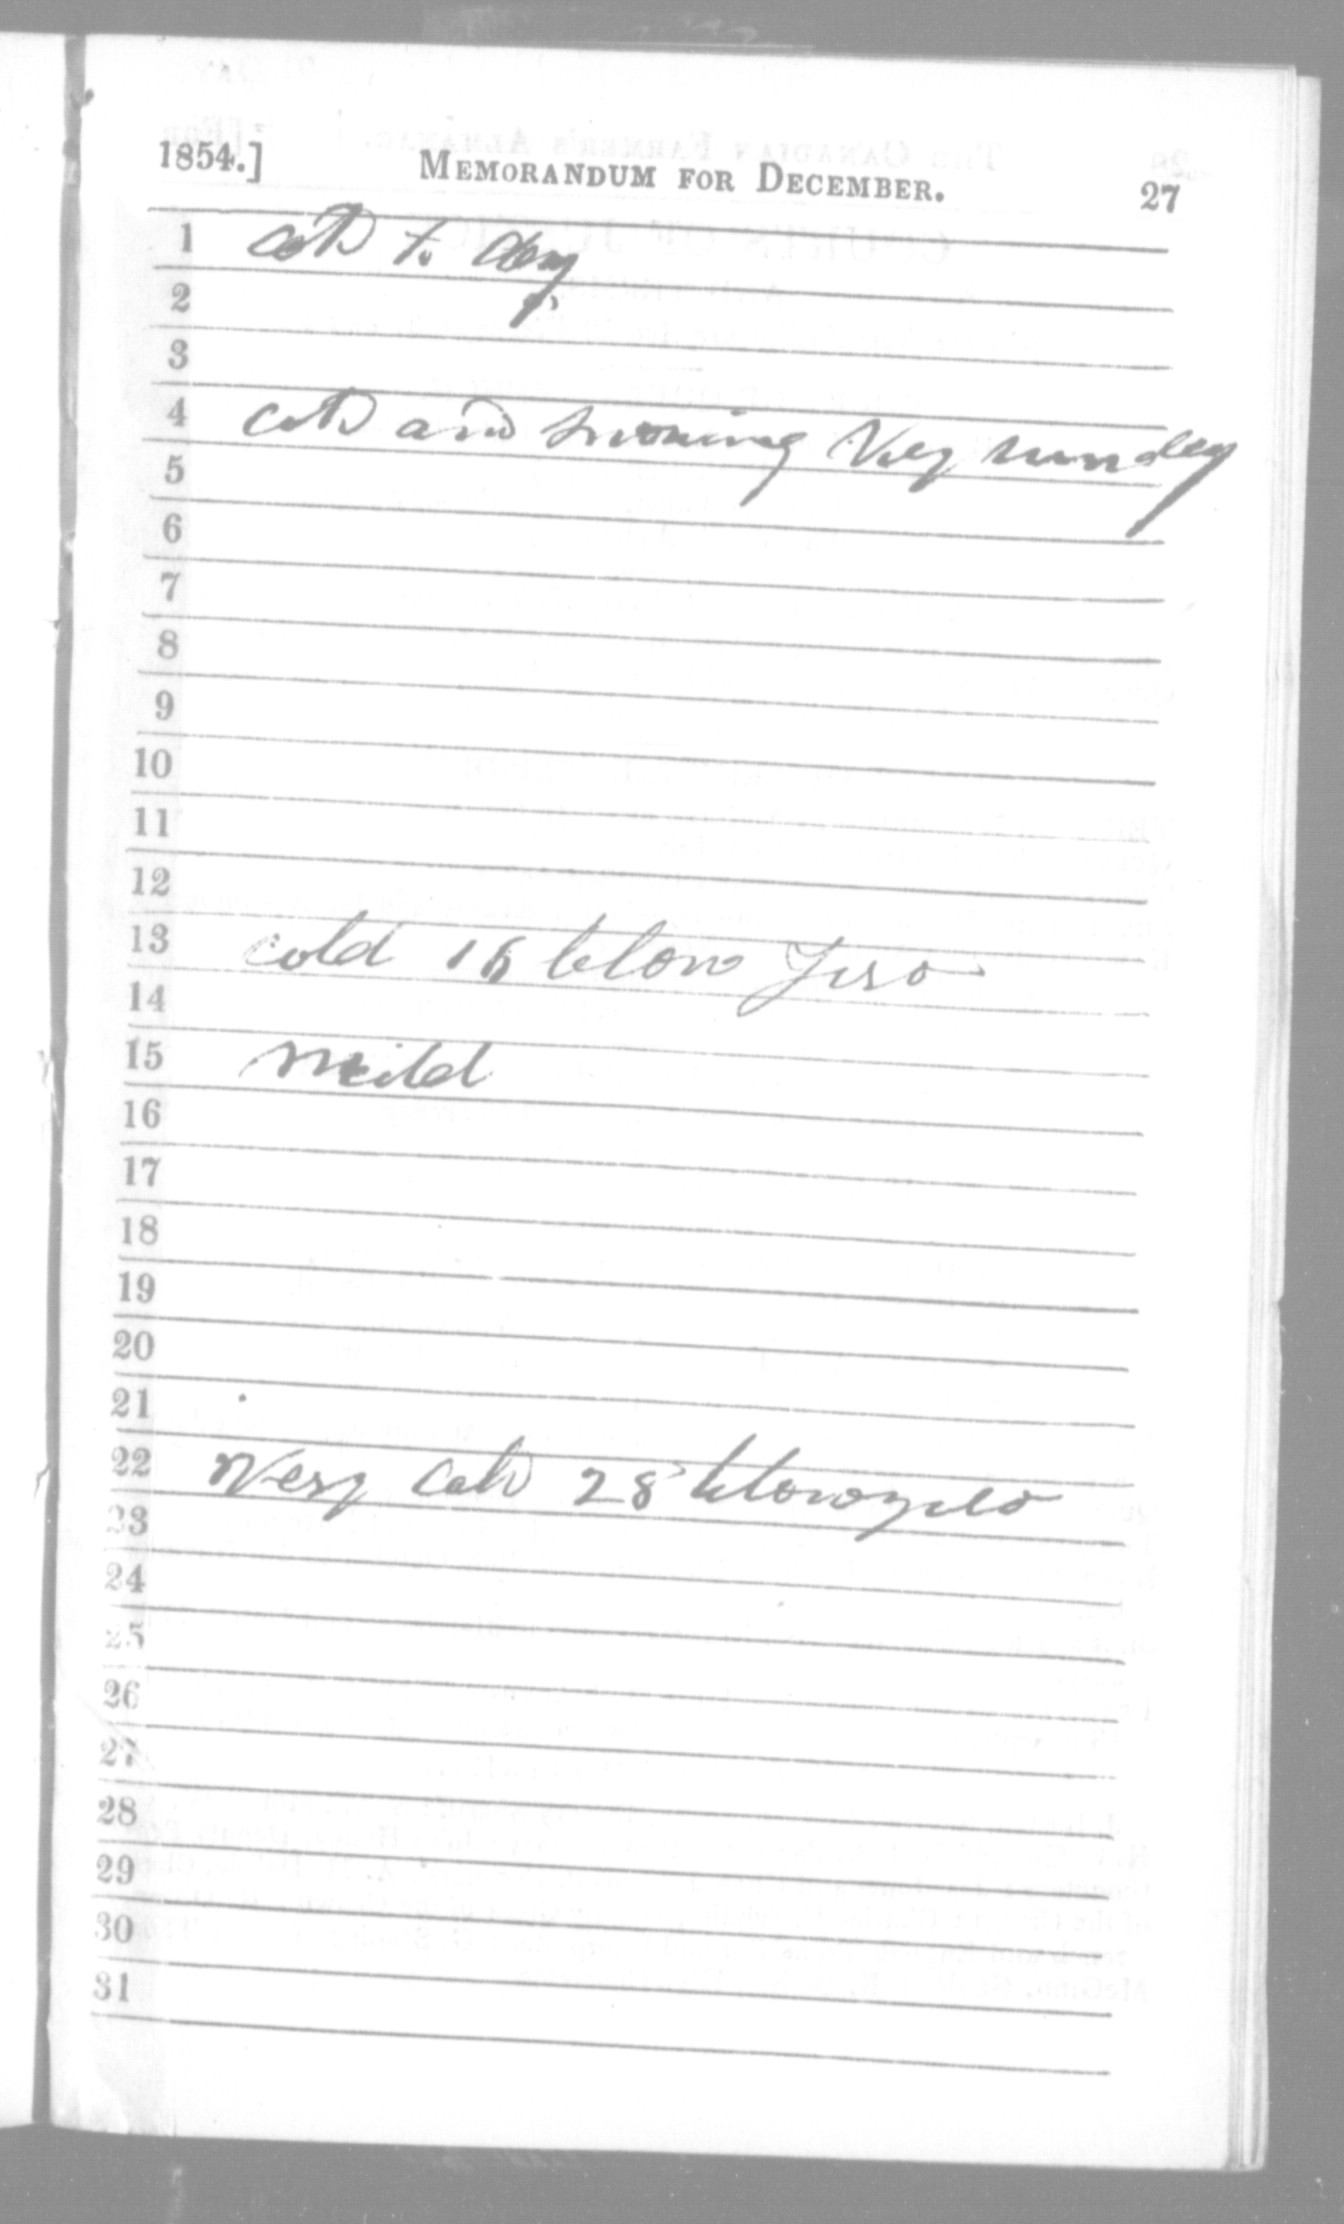 1854.] MEMORANDUM FOR DECEMBER. 27
1 Cold to day
2
3
4 cold and snowing Very sunday
5
6
7
8
9
10
11
12
13 cold 16 below zero
14
15 mild
16
17
18
19
20
21
22 Very cold 28 below zero
23
24
25
26
27
28
29
30
31